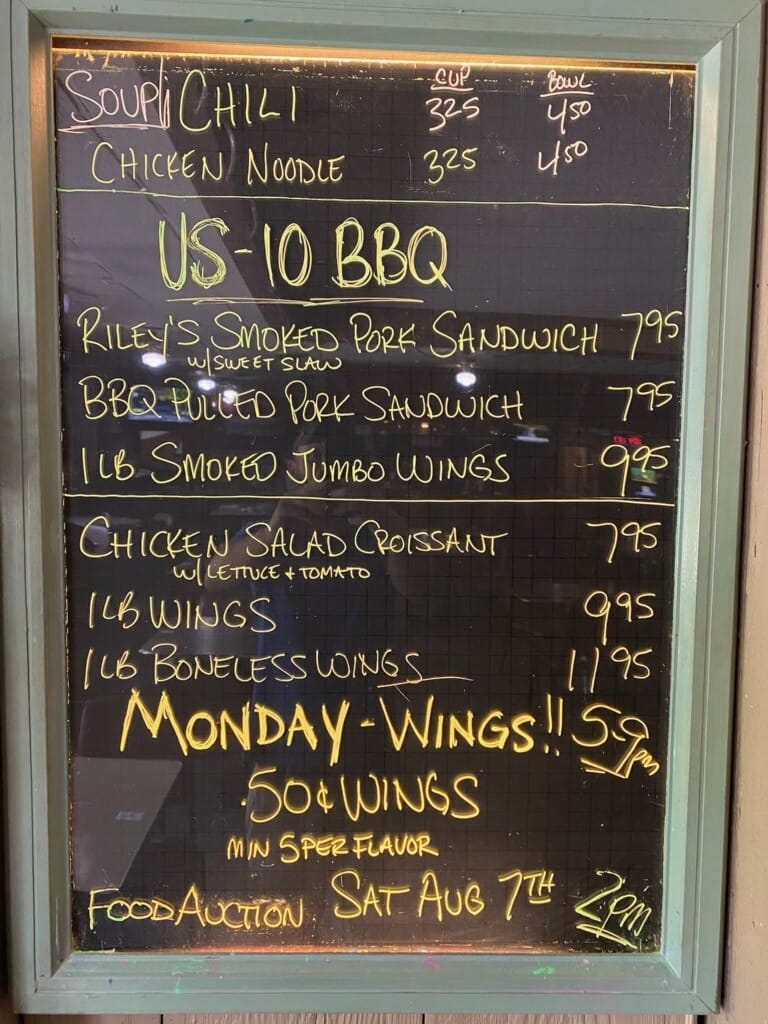 CUP BOWL
SOUP CHILI 325 450
CHICKEN NOODLE 325 450
US-10 BBQ
RILEY'S SMOKED PORK SANDWICH 795
W/SWEET SLAW
BBQ PULLED PORK SANDWICH 795
1 LB SMOKED JUMBO WINGS 995
CHICKEN SALAD CROISSANT 795
W/LETTUCE + TOMATO
1 LB WINGS 995
1 LB BONELESS WINGS 1195
MONDAY-WINGS!! 5-9pm
.50¢ WINGS
MIN 5 PER FLAVOR
FOOD AUCTION SAT AUG 7TH 2pm